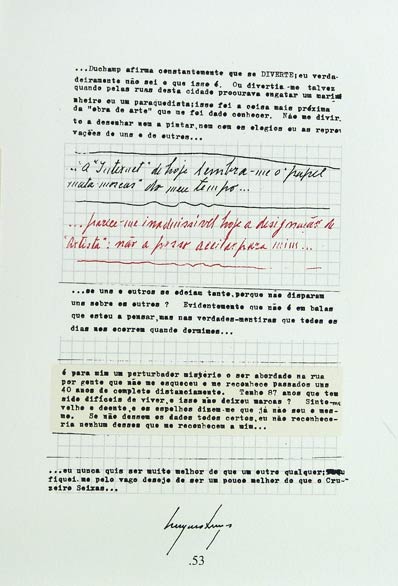 ...Duchamp afirma constantemente que se DIVERTE; eu verda-
deiramente não sei o que isso é. Ou divertia-me talvez
quando pelas ruas desta cidade procurava engatar um mari
nheiro ou um paraquedista; isso foi a coisa mais próxima
da "obra de arte" que me foi dado conhecer. Não me divir
to a desenhar nem a pintar, nem com os elogios ou as repro
vações de uns e de outros...
...a "Internet" de hoje lembra-me o papel
mata moscas do meu tempo...
...parece-me inadmissível hoje a designação de
"Artista": não a posso aceitar para mim...
...se uns e outros se odeiam tanto, porque não disparam
uns sobre os outros ? Evidentemente que não é em balas
que estou a pensar, mas nas verdades-mentiras que todos os
dias nos ocorrem quando dormimos...
é para mim um perturbador mistério o ser abordado na rua
por gente que não me esqueceu e me reconhece passados uns
40 anos de completo distanciamento. Tenho 87 anos que tem
sido difíceis de viver, e isso não deixou marcas ? Sinto-me
velho e doente, e os espelhos dizem-me que já não sou o mes-
mo. Se não dessem os dados todos certos, eu não reconhece-
ria nenhum desses que me reconhecem a mim...
...eu nunca quis ser muito melhor do que um outro qualquer;
fiquei-me pelo vago desejo de ser um pouco melhor do que o Cru-
zeiro Seixas...
.53